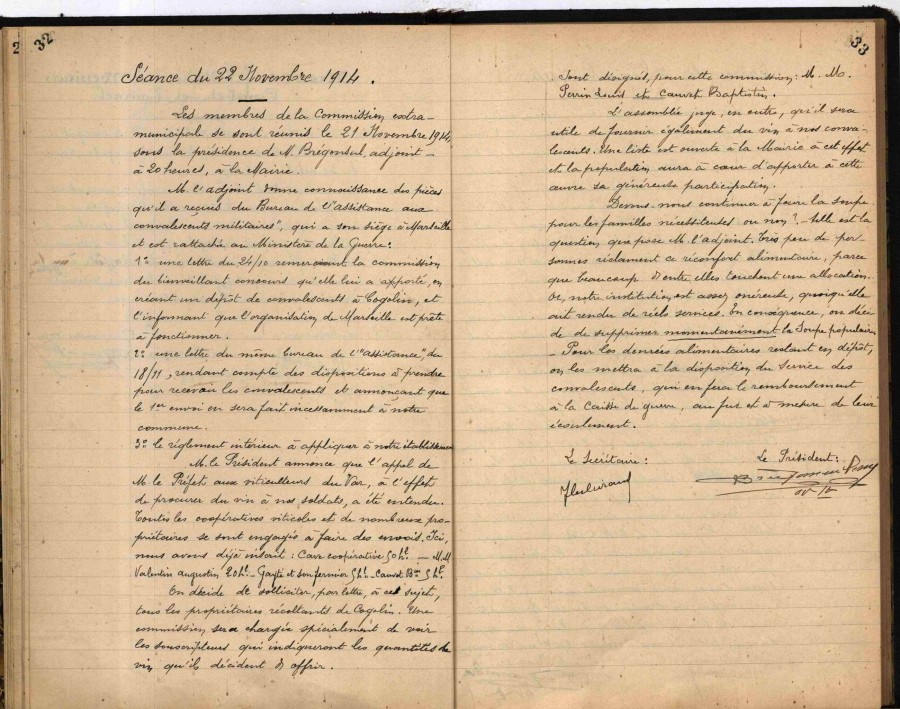 2
32
Séance du 22 Novembre 1914.
Les membres de la Commission extra-
municipale se sont réunis le 21 Novembre 1914,
sous la présidence de M. Brégonsul, adjoint -
à 20 heures, à la Mairie.
M. l'adjoint donne connaissance des pièces
qu'il a reçues du Bureau de l'"assistance aux
convalescents militaires", qui a son siège à Marseille
et est rattaché au Ministère de la Guerre:
1º une lettre du 24/10 remerciant la commission
du bienveillant concours qu'elle lui a apporté, en
créant un dépôt de convalescents à Cogolin, et
l'informant que l'organisation de Marseille est prête
à fonctionner.
2º une lettre du même bureau de l'"assistance", du
18/11, rendant compte des dispositions à prendre
pour recevoir les convalescents et annonçant que
le 1er envoi en sera fait incessamment à notre
commune.
3º le règlement intérieur à appliquer à notre établissement
M. le Président annonce que l'appel de
M le Préfet aux viticulteurs du Var, à l'effet
de procurer du vin à nos soldats, a été entendu.
Toutes les coopératives viticoles et de nombreux pro-
priétaires se sont engagés à faire des envois. Ici,
nous avons déjà inscrit: Cave coopérative 50hl. - M.M
Valentin augustin 20hl. - Gayté et son fermier 5hl. - Cauvet Bin 5hl.
On décide de solliciter, par lettre, à ce sujet,
tous les propriétaires récoltants de Cogolin. Une
commission sera chargée spécialement de voir
les souscripteurs qui indiqueront les quantités de
vin qu'ils décident d'offrir.
33
Sont désignés, pour cette commission: M. M.
Perrin Louis et Cauvet Baptistin.
L'assemblée juge, en outre, qu'il sera
utile de fournir également du vin à nos conva-
lescents. Une liste est ouverte à la Mairie à cet effet
et la population aura à cœur d'apporter à cette
œuvre sa généreuse participation.
Devons-nous continuer à faire la soupe
pour les familles nécessiteuses ou non? - telle est la
question que pose M. l'adjoint. Très peu de per-
sonnes réclament ce réconfort alimentaire, parce
que beaucoup d'entre elles touchent une allocation.
Or, notre institution est assez onéreuse, quoiqu'elle
ait rendu de réels services. En conséquence, on déci-
de de supprimer momentanément la Soupe populaire
- Pour les denrées alimentaires restant en dépôt,
on les mettra à la disposition du Service des
convalescents, qui en fera le remboursement
à la Caisse de guerre, au fur et à mesure de leur
écoulement.
Le Secrétaire:
Le Président: